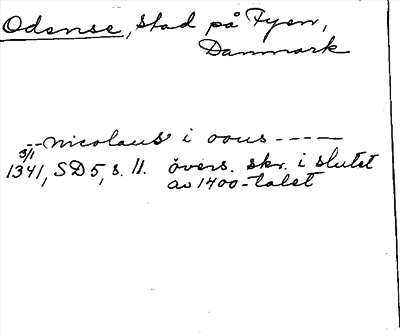 Odense, stad på Fyen,
Danmark
-- nicolaus i oous ----
3/1
1341, SD5, s. 11. övers. skr. i slutet
av 1400-talet